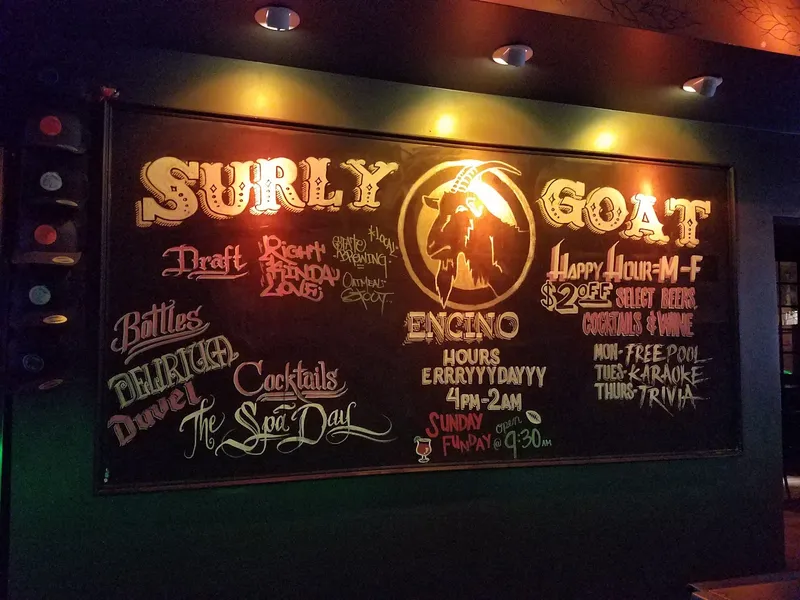 SURLY GOAT
Draft
RIGHT
KINDA
LOVE
BREWING
OATMEAL
Bottles
DELIRIUM
Duvel
Cocktails
The Spa Day
ENCINO
HOURS
ERRRYYYDAYYY
4PM-2AM
SUNDAY
FUNDAY
open
@ 9:30AM
HAPPY HOUR=M-F
$2 OFF SELECT BEERS,
COCKTAILS & WINE
MON-FREE POOL
TUES-KARAOKE
THURS-TRIVIA